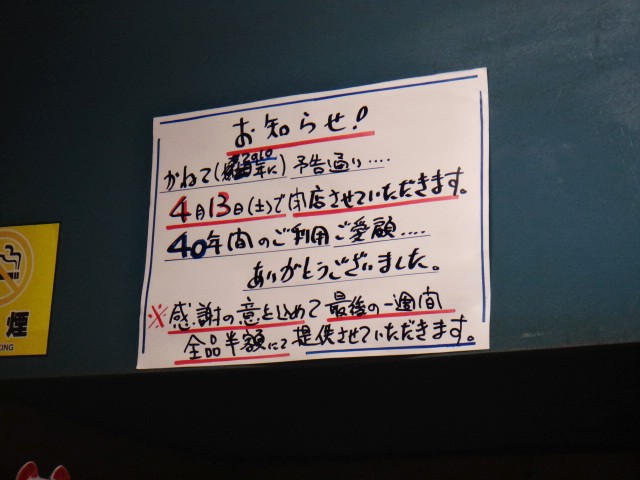 お知らせ!
かねて(2010年に)予告通り....
4月13日(土)で閉店させていただきます。
40年間のご利用ご愛顧....
ありがとうございました。
※感謝の意をこめて最後の一週間
全品半額にて提供させていただきます。
煙
KING